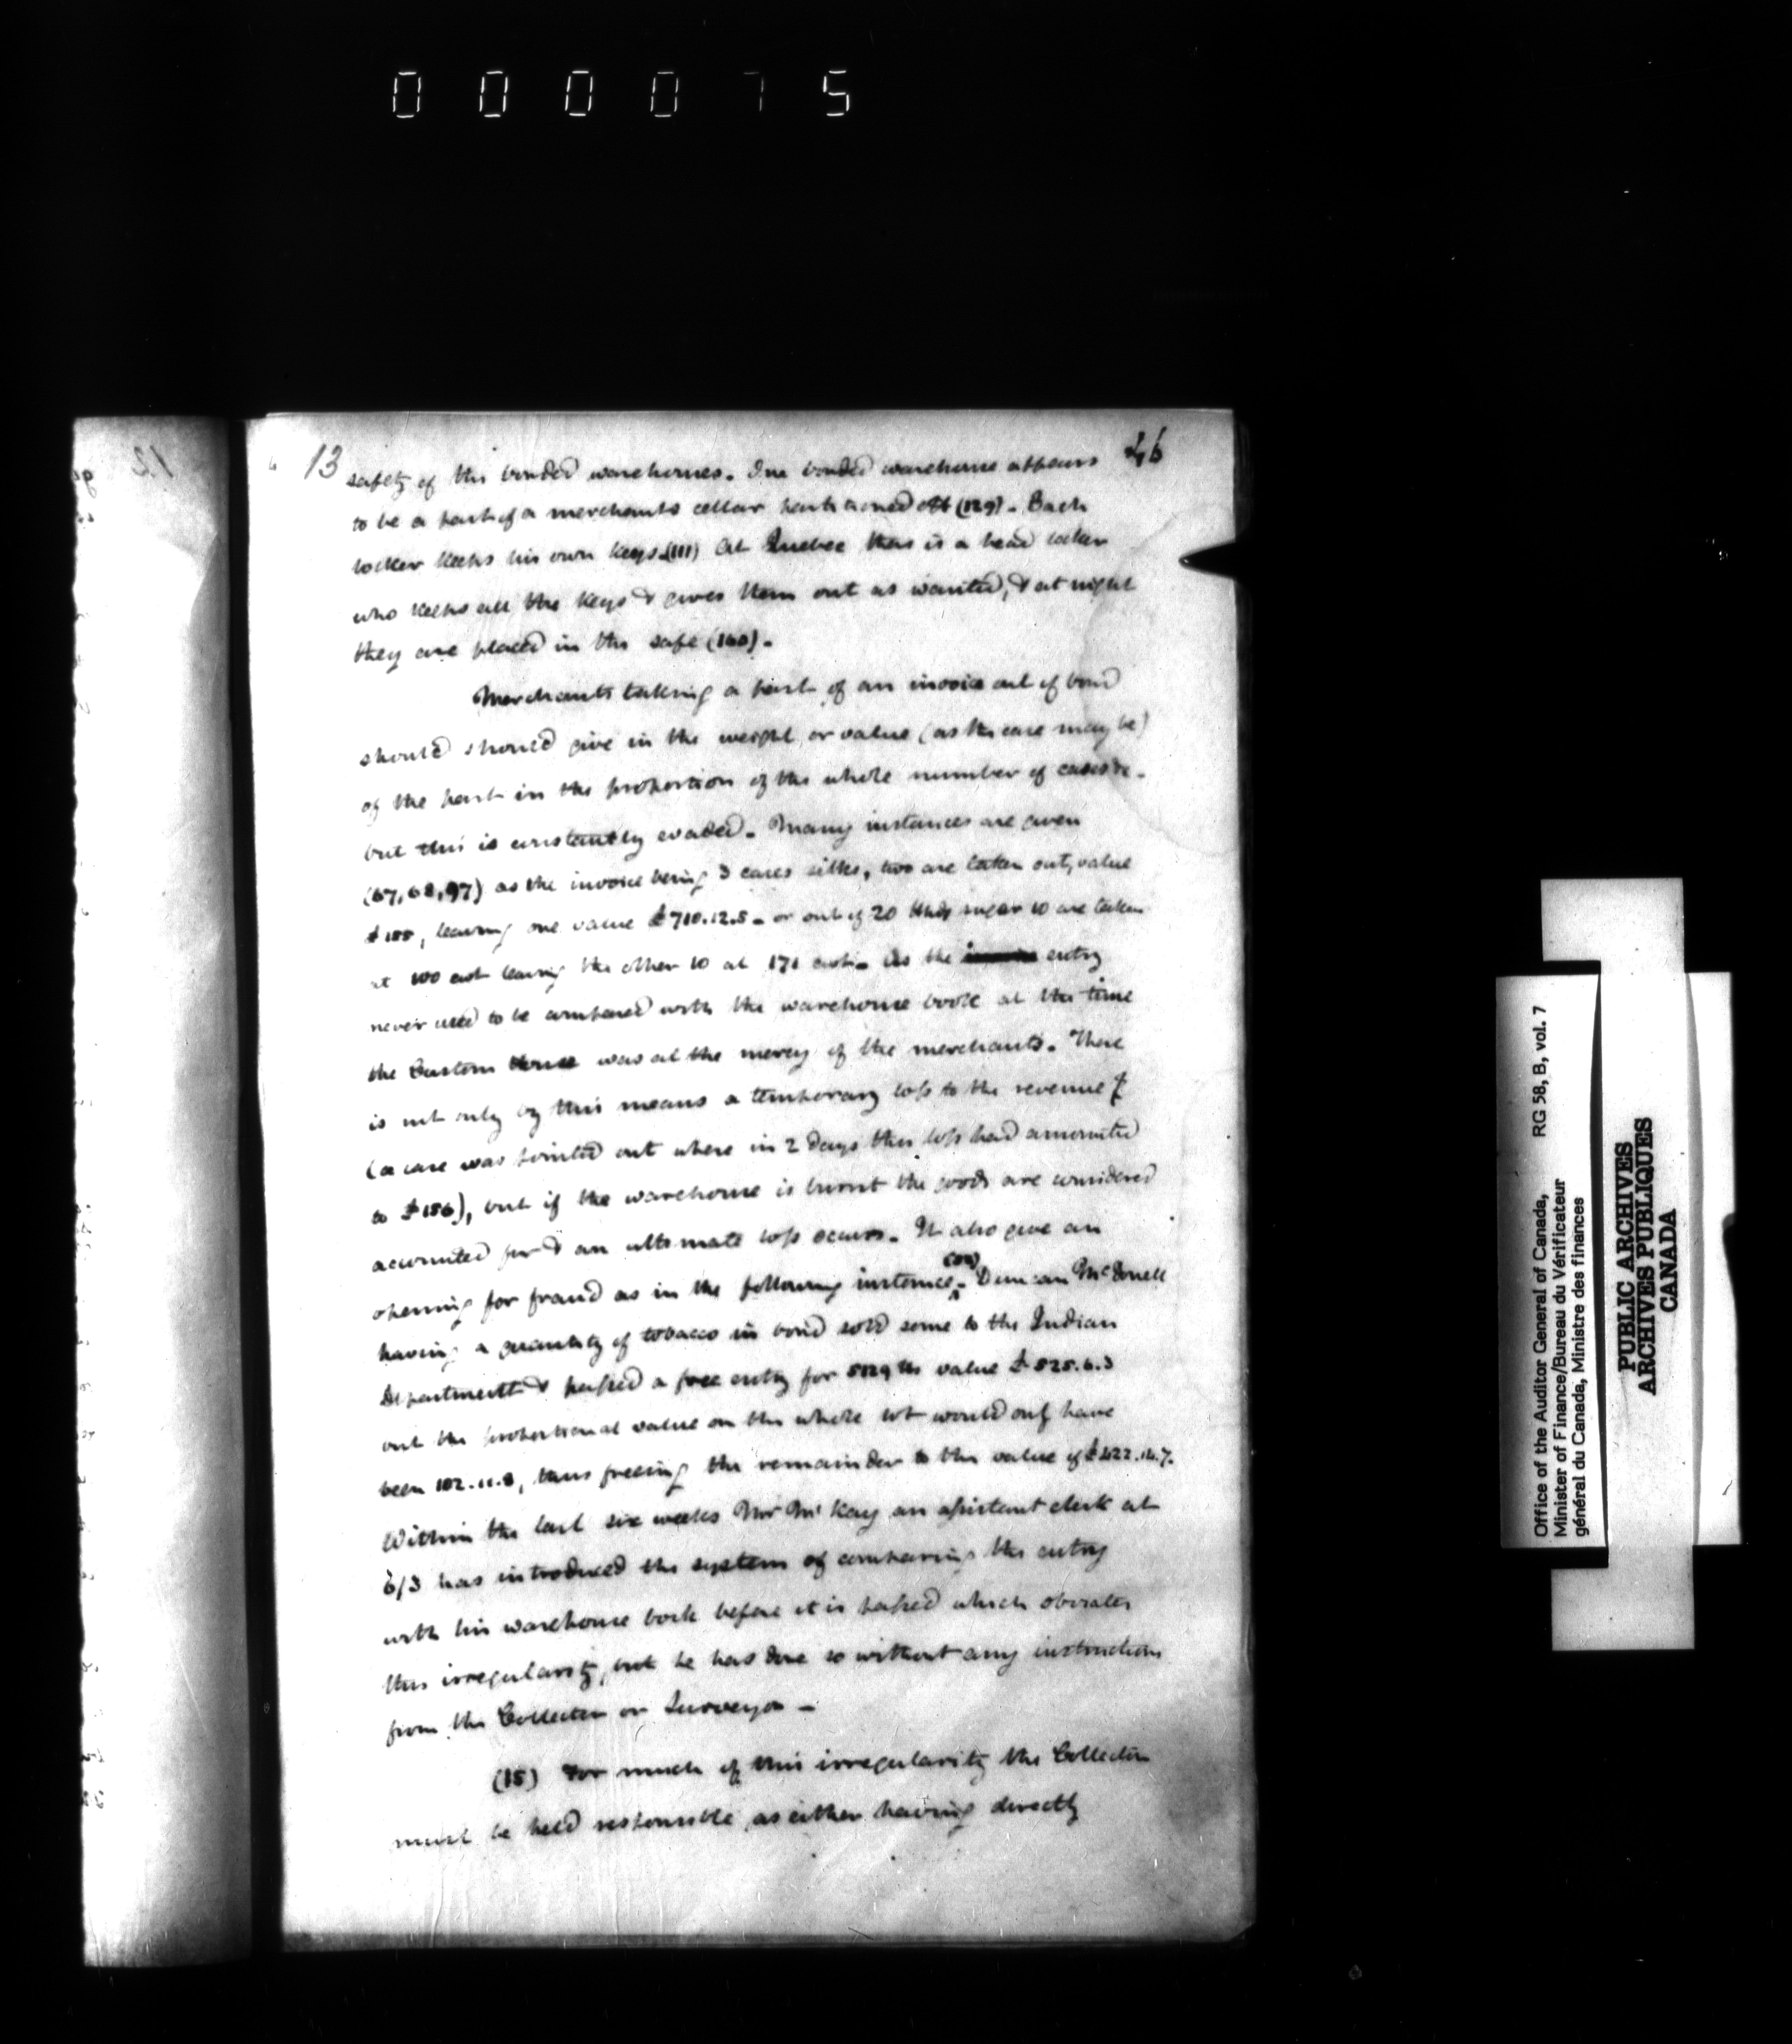 000075
13
46
safety of the bonded warehouses. One bonded warehouse appears
to be a part of a merchants cellar partitioned off (129). Each
locker keeps his own keys (111) At Quebec there is a head locker
who keeps all the keys & gives them out as wanted, & at night
they are placed in the safe (160).
Merchants taking a part of an invoice out of bond
should should give in the weight, or value (as the case may be)
of the part in the proportion of the whole number of cases &c.
but this is constantly evaded. Many instances are given
(67,68,97) as the invoice being 3 cases silks, two are taken out, value
£188, leaving one value £710.12.5 - or out of 20 hhds sugar 10 are taken
at 100 cwt leaving the other 10 at 171 cwt. As the entry
never used to be compared with the warehouse book at the time
the Custom House was at the mercy of the merchants. There
is not only by this means a temporary loss to the revenue
(a case was pointed out where in 2 days this loss had amounted
to £186), but if the warehouse is burnt the goods are considered
accounted for & an ultimate loss occurs. It also give an
opening for fraud as in the following instance. Duncan McDonell
having a quantity of tobacco in bond sold some to the Indian
Department & passed a free entry for 5029 lbs value £525.6.3
but the proportional value on the whole lot would only have
been 102.11.8, thus freeing the remainder to the value of £422.14.7.
Within the last six weeks Mr McKay an assistant clerk at
6/3 has introduced the system of comparing the entry
with his warehouse book before it is passed which obviates
this irregularity, but he has done so without any instructions
from the Collector or Surveyor -
(15) For much of this irregularity the Collector
must be held responsible, as either having directly
Office of the Auditor General of Canada, RG 58, B, vol. 7
Minister of Finance/Bureau du Vérificateur
général du Canada, Ministre des finances
PUBLIC ARCHIVES
ARCHIVES PUBLIQUES
CANADA